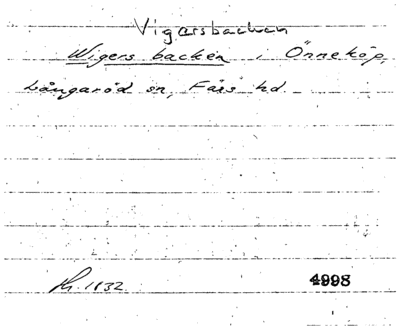 Vigersbacken
Wigers backen i Önneköp,
Långaröd sn, Färs hd.
1132 4998